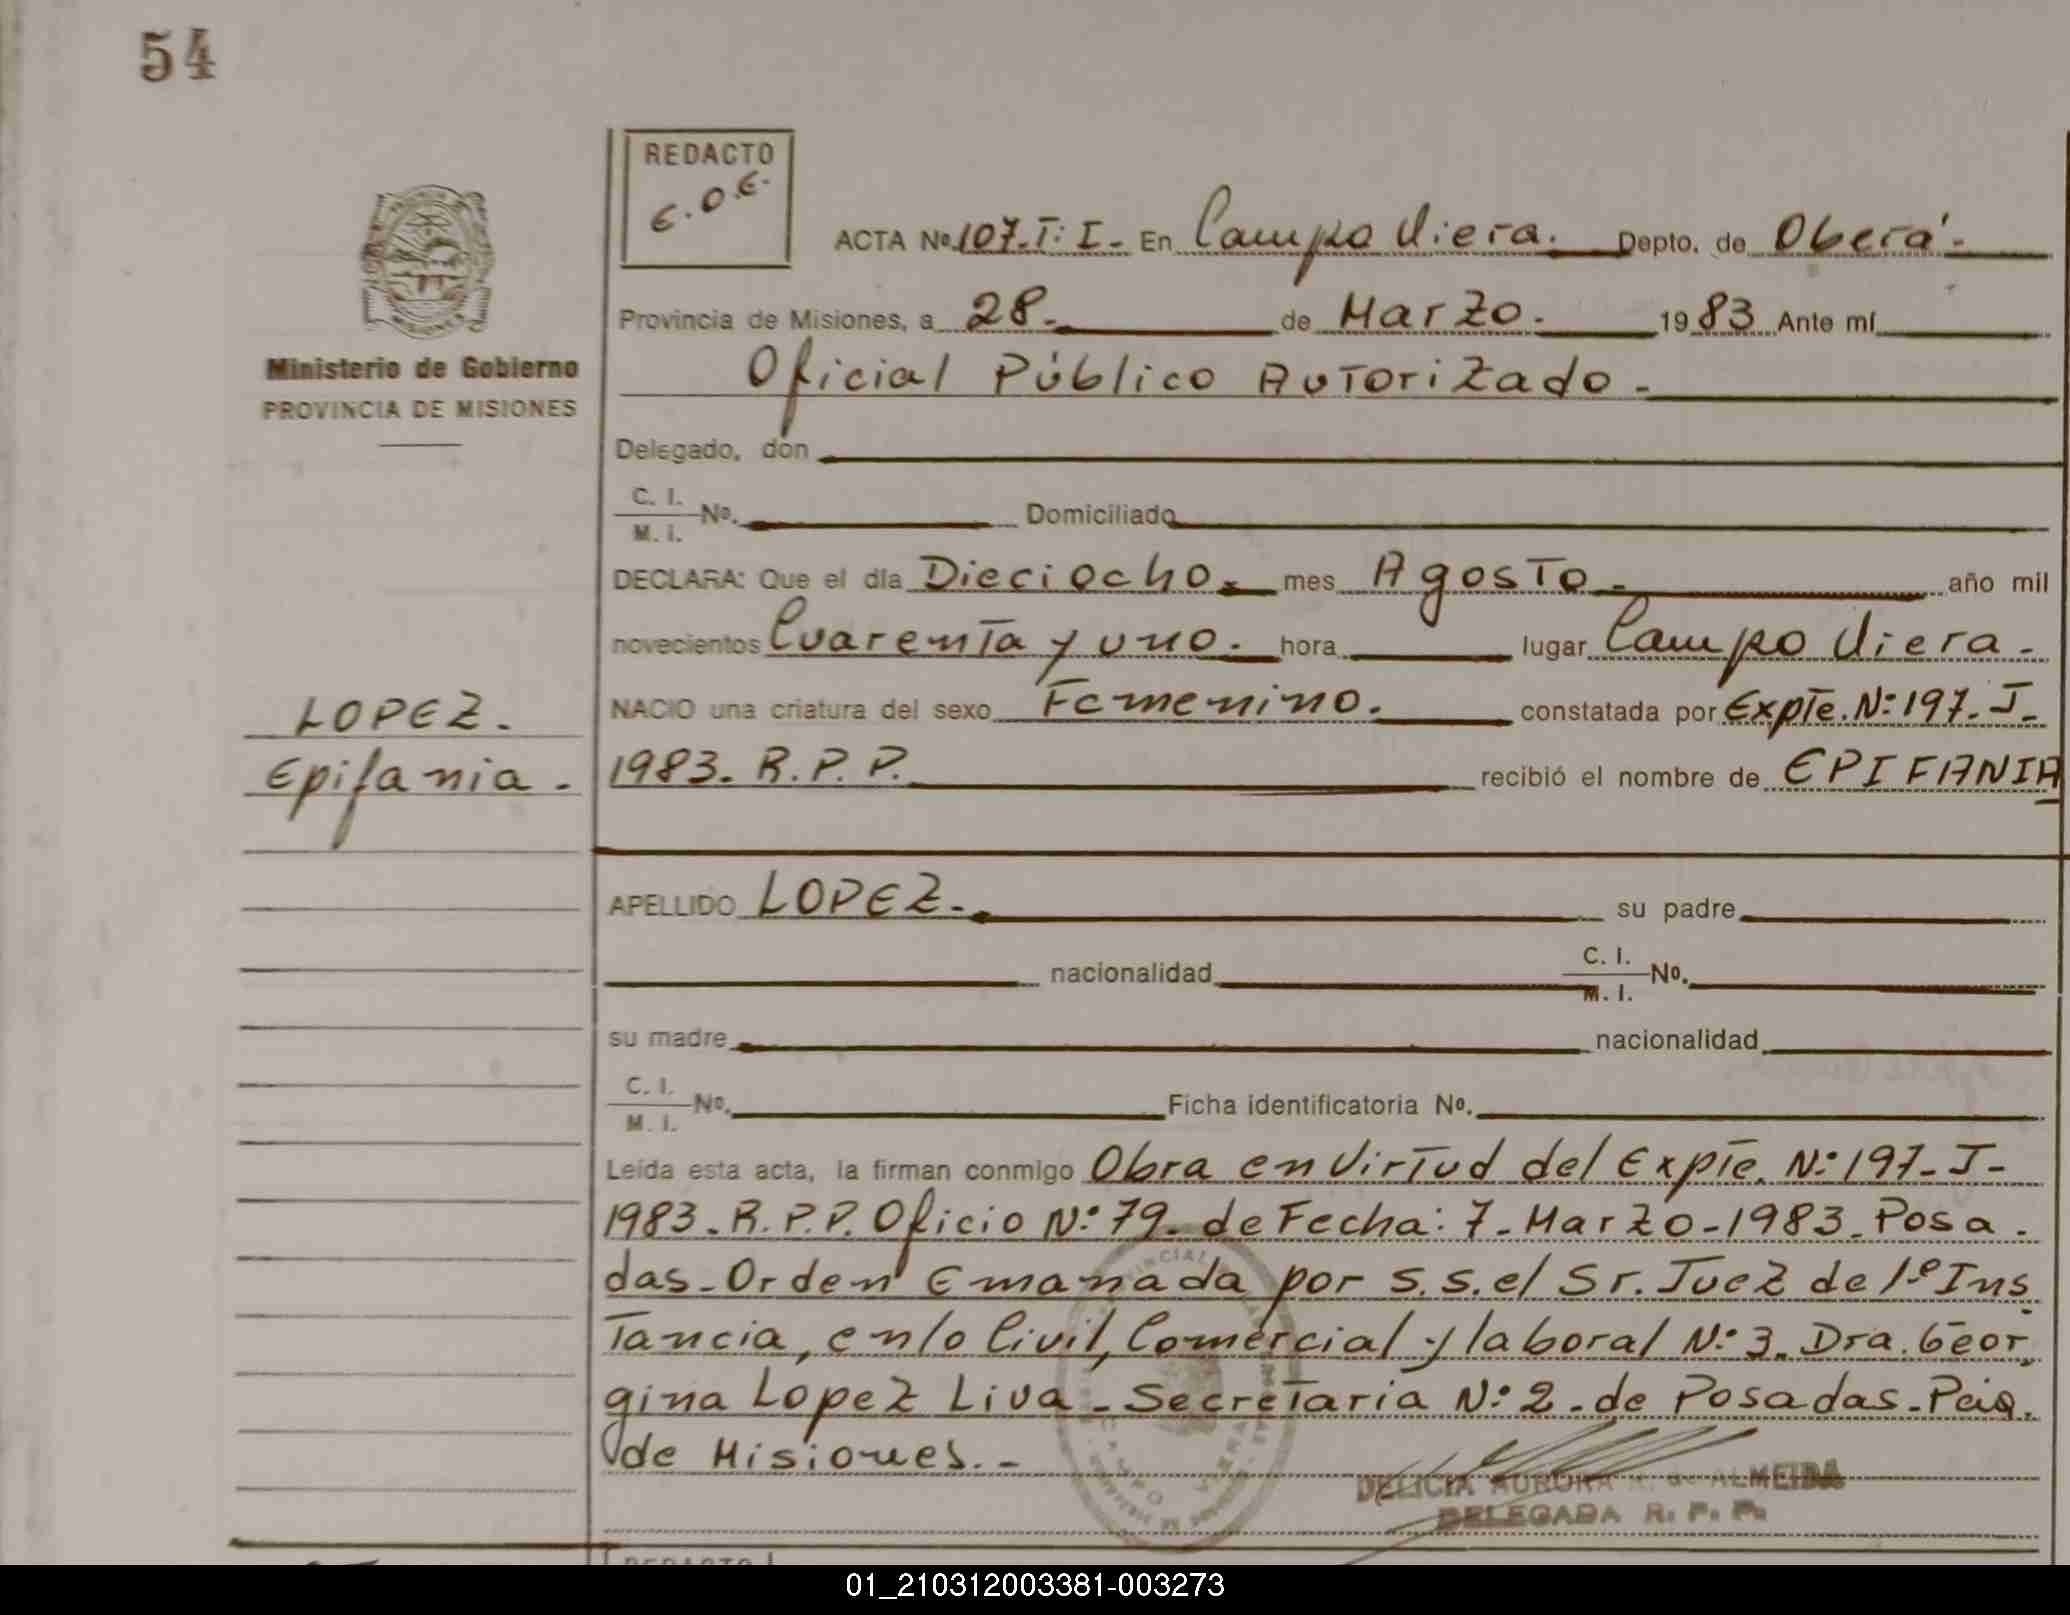 54
REDACTO
E.O.E.
ACTA Nº 107.T: I.- En Campo Viera. Depto. de Oberá.-
Provincia de Misiones, a 28.- de Marzo.- 1983 Ante mí
Oficial Público Autorizado.-
Ministerio de Gobierno
PROVINCIA DE MISIONES
Delegado, don
C. I.
M. I. Nº. Domiciliado
DECLARA: Que el día Dieciocho.- mes Agosto.- año mil
novecientos Cuarenta y uno.- hora lugar Campo Viera.-
NACIO una criatura del sexo Femenino.- constatada por Expte. Nº:197-J-
1983. R.P.P. recibió el nombre de EPIFANIA
LOPEZ.
Epifania.-
APELLIDO LOPEZ.- su padre
nacionalidad C. I.
M. I. Nº.
su madre nacionalidad
C. I.
M. I. Nº. Ficha identificatoria Nº.
Leída esta acta, la firman conmigo Obra en Virtud del Expte. Nº:197-J-
1983.R.P.P. Oficio Nº:79- de Fecha: 7-Marzo-1983-Posa-
das-Orden Emanada por s.s. el Sr. Juez de 1º Ins
tancia, en lo Civil, Comercial y laboral Nº:3. Dra. Geor
gina Lopez Liva - Secretaria Nº:2.- de Posadas-Pcia.
de Misiones.-
DELICIA AURORA de ALMEIDA
DELEGADA R. P. P.
REDACTO
01_210312003381-003273